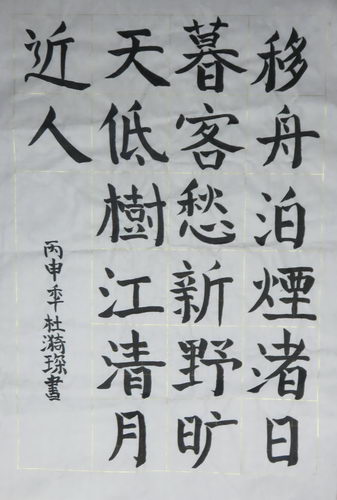 移舟泊煙渚日
暮客愁新野旷
天低樹江清月
近人
丙申季杜漪琛書